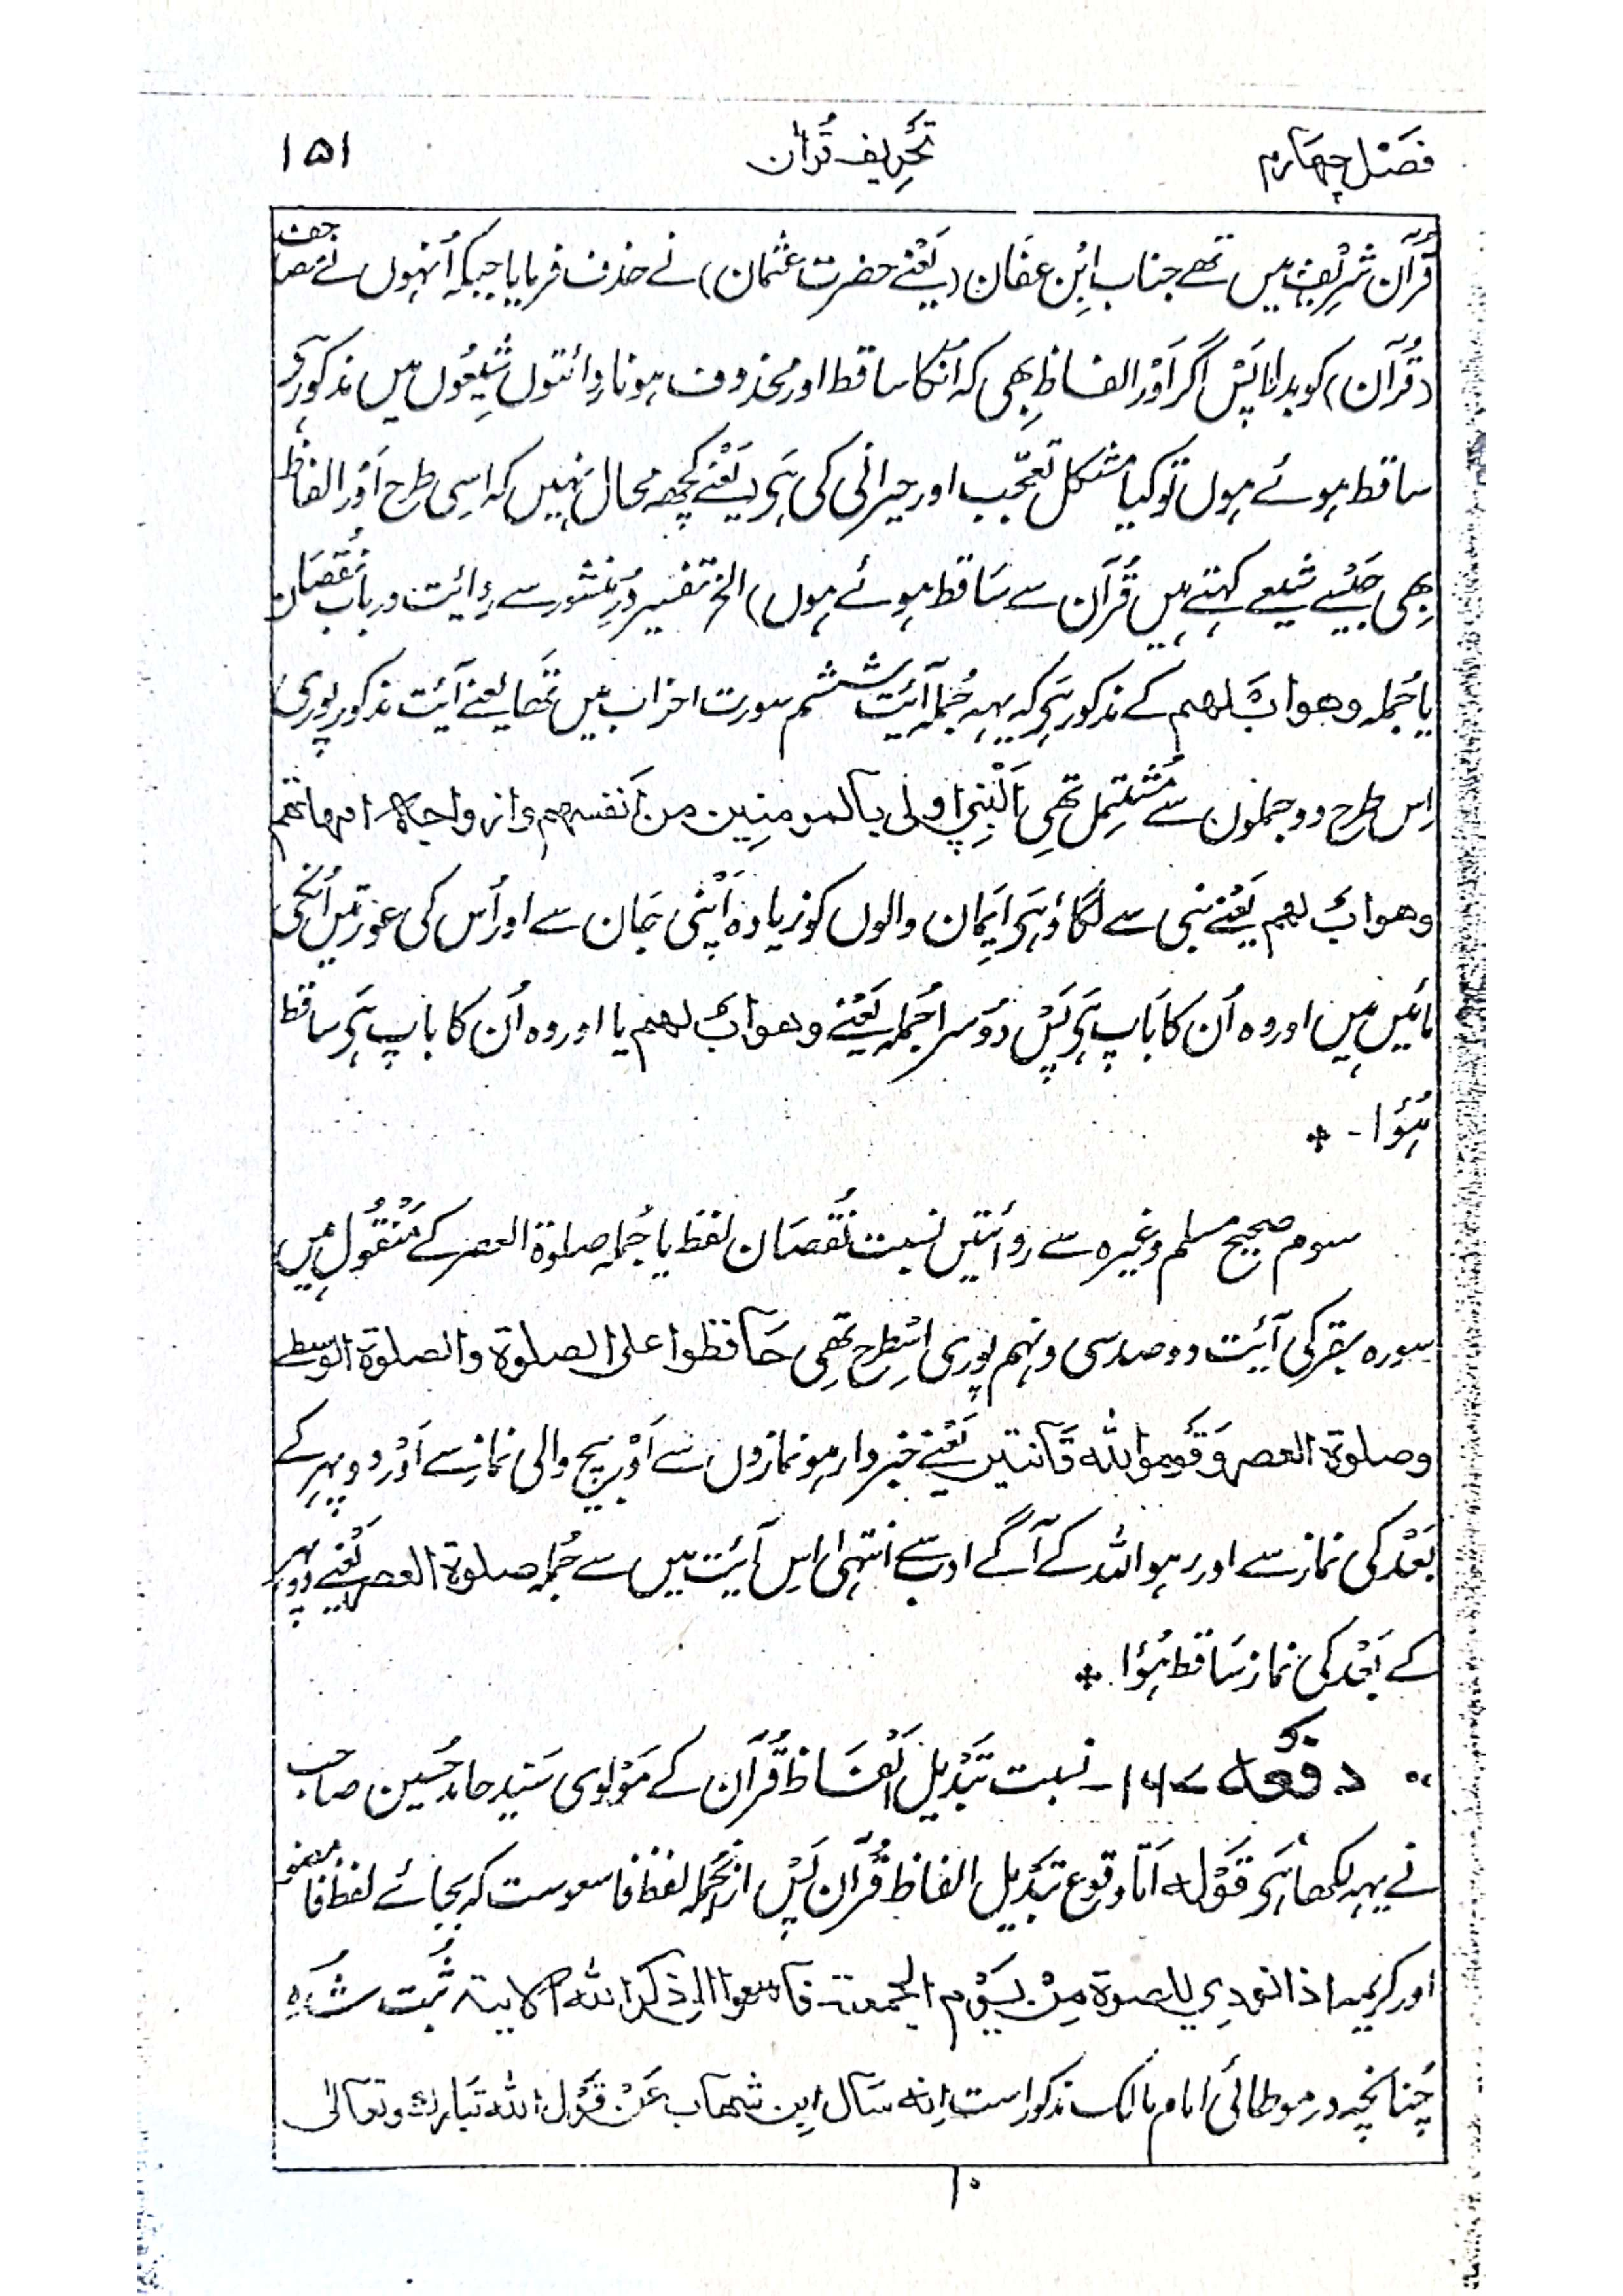 فصل چهارم تحریف قرآن ۱۵۱
قرآن شریف میں تھے جناب ابن عفان (یعنے حضرت عثمان) نے حذف فرمایا جبکہ اُنہوں نے مصاحف
(قرآن) کو بدلا پس اگر اور الفاظ بھی کہ اُنکا ساقط اور محذوف ہونا روائتوں شیعوں میں مذکور ہَی
ساقط ہوئے ہوں تو کیا مشکل تعجّب اور حیرانی کی ہَی (یعنے کُچھ محال نہیں کہ اسی طرح اَور الفاظ
بھی جَیسے شیعے کہتے ہیں قُرآن سے ساقط ہوئے ہوں) الخ تفسیر دُرِ منثور سے رِوائیت در باب نُقصان
یا جُملہ وهواب لهم کے مذکور ہَی کہ یہہ جُملہ آئیت ششم سورت احزاب میں تھا یعنے آئیت مذکور پوری
اِس طرح دو جملوں سے مُشتمِل تھی اَلنبی اولی بالمومنین من اَنفسهم وازواجه امهاتهم
وهواب لهم یَعنے نبی سے لگاؤ ہَی ایمان والوں کو زیادہ اَپنی جان سے اور اُس کی عَورتیں اُنکی
مائیں ہیں اور وہ اُن کا باپ ہَی پَس دُوسرا جُملہ یَعنے وهواب لهم یا اور وہ اُن کا باپ ہَی ساقط
ہُؤا - *
سوم صحیح مسلم وغیرہ سے روائتیں نسبت نُقصان لفظ یا جُملہ صلوة العصر کے مَنقُول ہیں
سورہ بقر کی آئیت دو صد سی و نہم پوری اسطرح تھی حَافظوا علی الصلوة والصلوة الوسطے
وصلوة العصر وَقوموالله قَانتین یَعنے خبردار ہو نمازوں سے اَور بیچ والی نماز سے اَور دوپہر کے
بَعد کی نماز سے اور رہو اللہ کے آگے ادب سے انتہی اِس آئیت میں سے جُملہ صلوة العصر یَعنے دوپہر
کے بَعد کی نماز سَاقط ہُؤا *
دفعه ۱۶۷- نسبت تَبدیل اَلفاظ قُرآن کے مَولوی سَیّد حامد حُسین صاحب
نے یہہ لکھا ہَی قَوله اَمّا وقوع تَبدیل الفاظ قُرآن پَس ازنجُملہ لفظ فاسعوست کہ بجائے لفظ فامضوا
اور کریمہ اذا نودی للصوة مِن یَوم الجمعة فاسعوا الی ذکر الله الایة ثَبت شُدہ
چُنانچہ در موطائی امام مالک مذکور است اِنه سَال ابن شهاب عَن قَول الله تَبارك وتعالی
۱۰